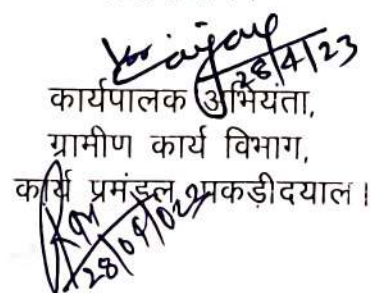 28/4/23
कार्यपालक अभियंता,
ग्रामीण कार्य विभाग,
कार्य प्रमंडल, पकड़ीदयाल।